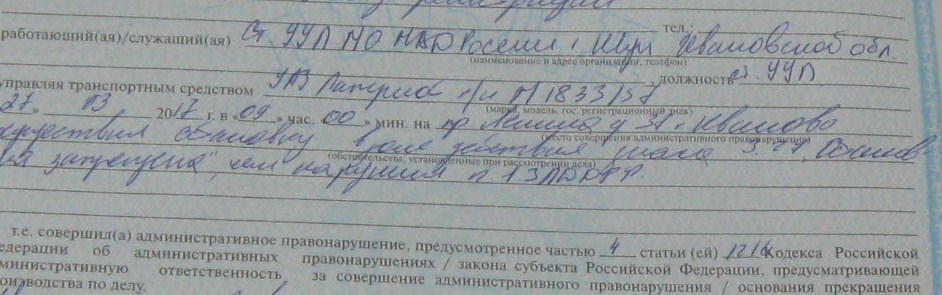 регистрации
работающий(ая)/служащий(ая) Ст. УУП МО МВД России г. Шуя Ивановской обл.
тел.:
(наименование и адрес организации, телефон)
управляя транспортным средством УАЗ Патриот г/н М 1833/37, должность ст. УУП
(марка, модель, гос. регистрационный знак)
27» 03 2017 г. в «09» час. 00 » мин. на пр Ленина г. Иваново
(место совершения административного правонарушения)
остановку в зоне действия знака 3.27 „Останов
(обстоятельства, установленные при рассмотрении дела)
запрещена", чем нарушил п. 1.3 ПДД РФ.
т.е. совершил(а) административное правонарушение, предусмотренное частью 4 статьи (ей) 12.16 Кодекса Российской
едерации об административных правонарушениях / закона субъекта Российской Федерации, предусматривающей
министративную ответственность за совершение административного правонарушения / основания прекращения
оизводства по делу.